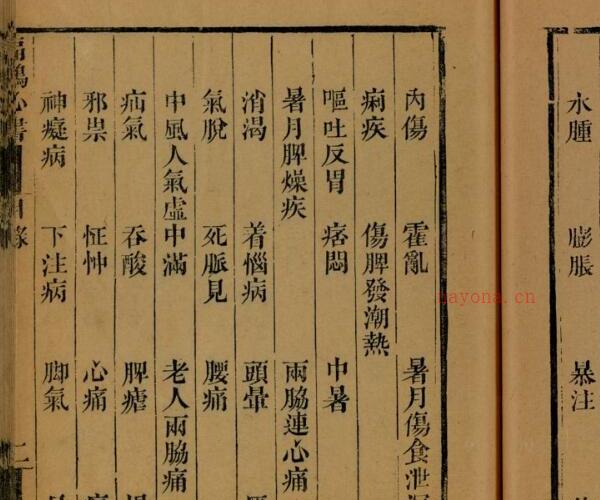 水腫 膨脹 暴注
內傷 霍亂 暑月傷食泄
痢疾 傷脾發潮熱
嘔吐反胃 痞悶 中暑
暑月脾燥疾 兩脇連心痛
消渴 着惱病 頭暈
氣脫 死脈見 腰痛
中風人氣虛中滿 老人兩脇痛
疝氣 吞酸 脾瘧
邪祟 怔忡 心痛
神癡病 下注病 脚氣
扁鵲心書 目錄 二
nayona.cn